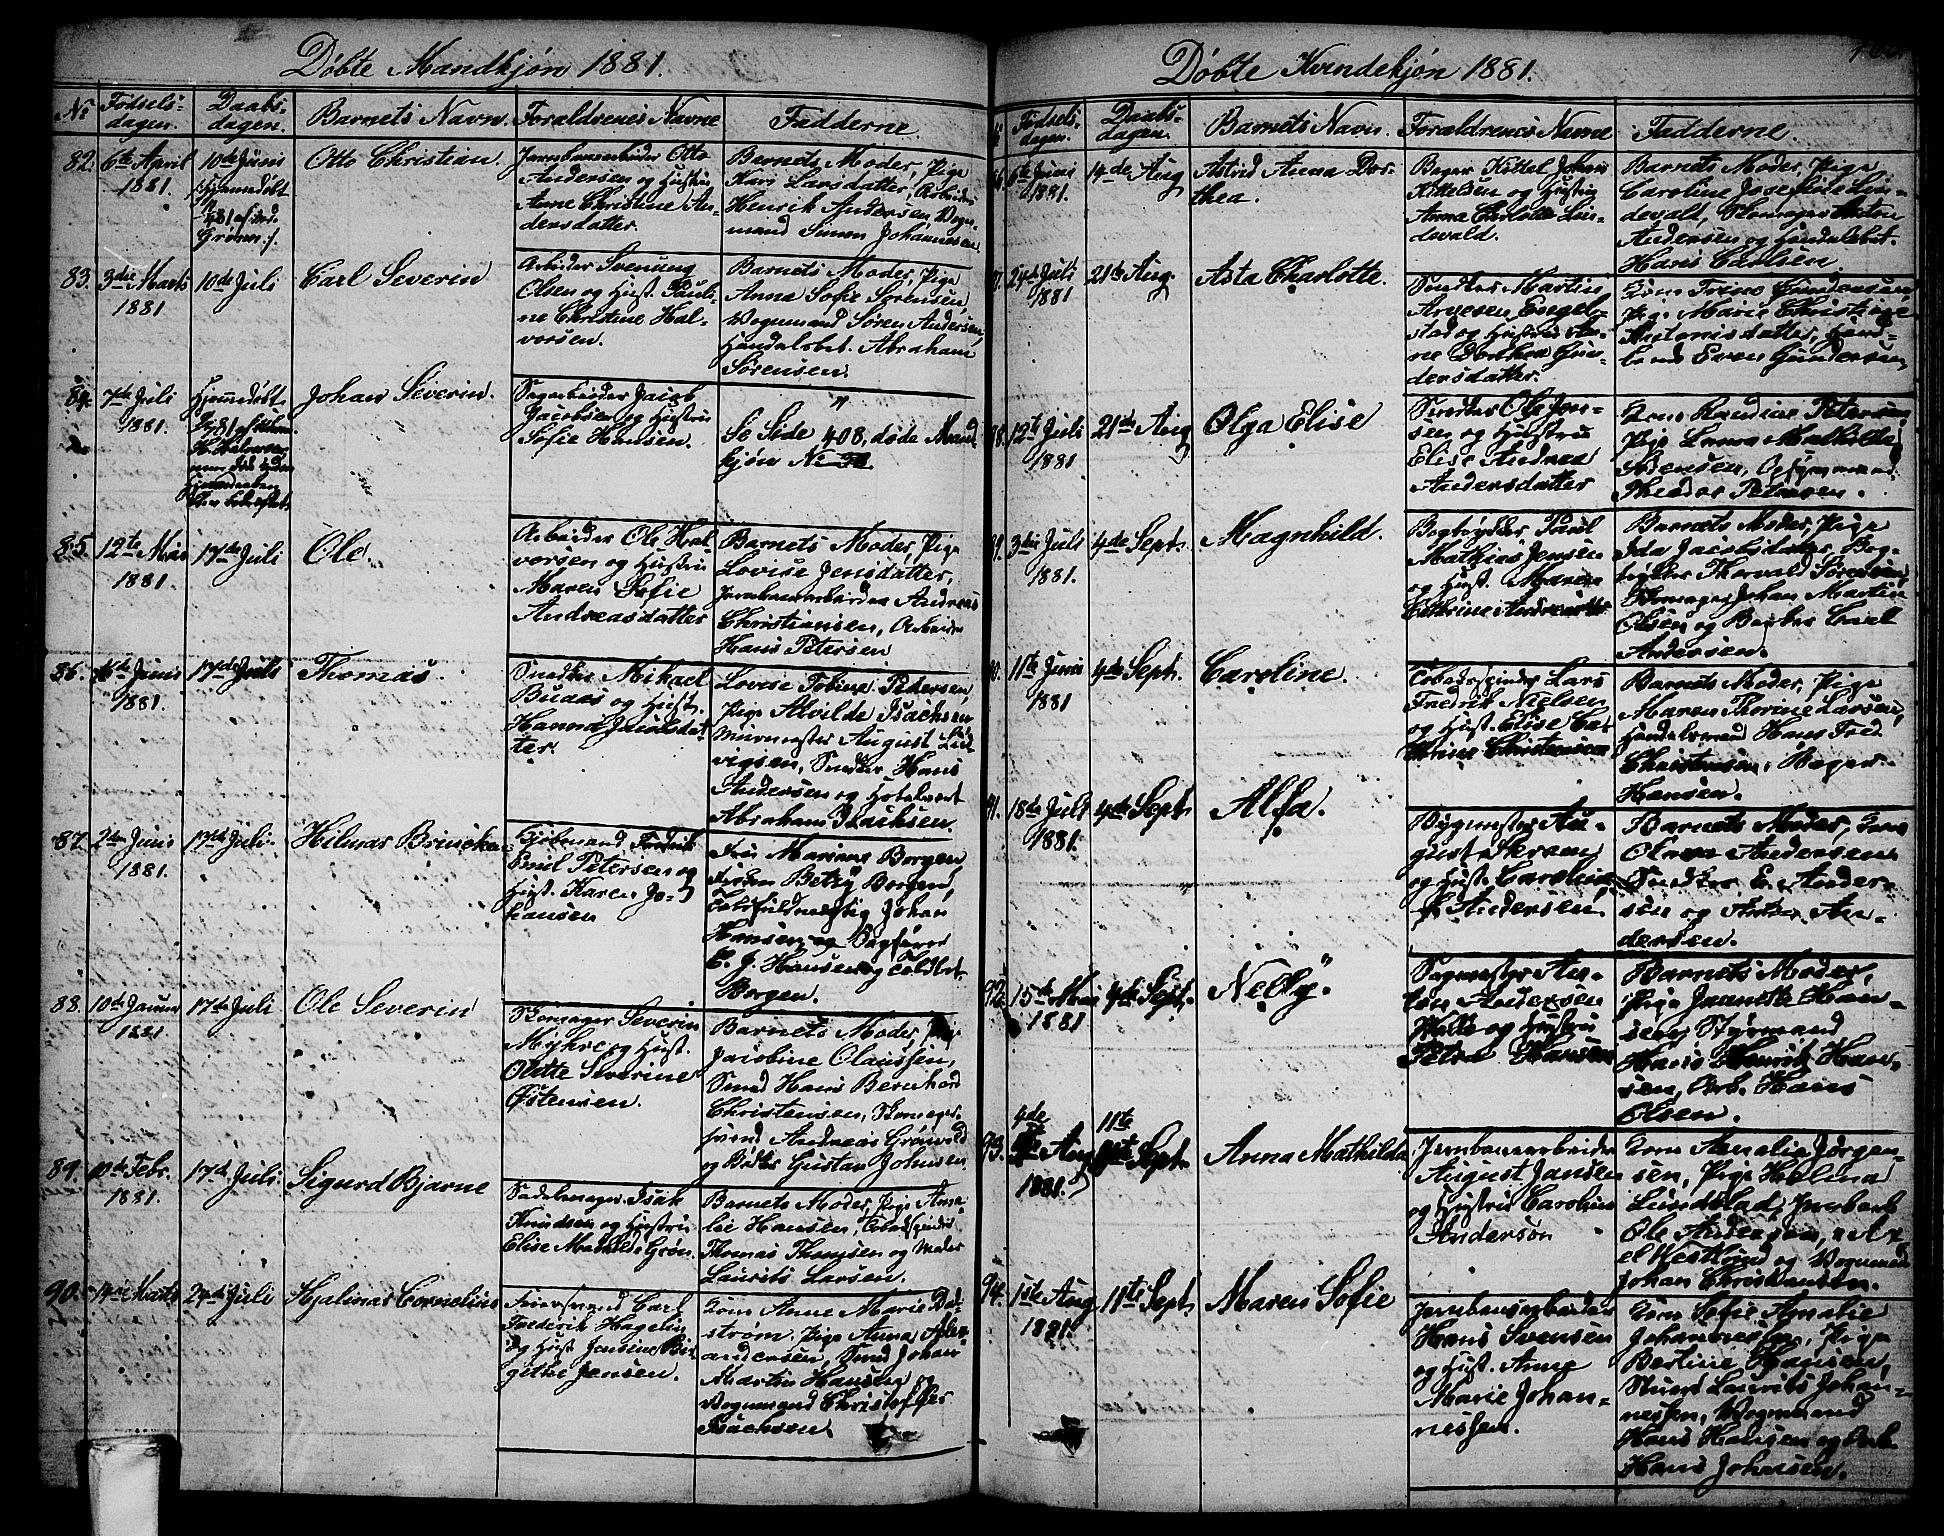 Døbte Mandkjøn 1881.
No Fødsels-dagen. Daabs-dagen. Barnets Navn. Forældrenes Navne Fadderne
82. 6te April 1881. 10de Juni Otto Christian.
Jernbanearbeider Otto
Andersen og Hustru
Anne Christine An-
dersdatter.
Barnets Moder, Pige
Kars Larsdatter, Arbeider
Henrik Andersen, Vogn-
mand Simon Johannesen
83. 3die Marts 1881 10de Juli Carl Severin
Arbeider Svenung
Olsen og Hust. Pauli-
ne Christine Hal-
vorsen.
Barnets Moder, Pige
Anna Sofie Sørensen,
Vognmand Søren Andersen,
Handelsbet. Abraham
Sørensen.
84. 7de Juli 1881. Hjemmedøbt
Johan Severin.
Sagarbeider Jacob
Jacobsen og Hustru
Sofie Hansen.
"
Se Side 408, døde Mand
kjøn No
85. 12te Mai 1881. 17de Juli Ole.
Arbeider Ole Hal-
vorsen og Hustru
Maren Sofie
Andreasdatter
Barnets Moder, Pige
Lovise Jensdatter,
Jernbanearbeider Andreas
Christiansen, Arbeider
Hans Petersen
86. Juni 1881. 17de Juli Thomas.
Snedker Mikael
Buaas og Hust.
Hanna Jacobsdat-
ter.
Lovise Tobine Pedersen,
Pige Alvilde Isachsen
Murmester August Lud-
vigsen, Snedker Hans
Andersen og Hotelvert
Abraham Isachsen.
87. 2den Juni 1881. 17de Juli. Hilmar Brincken
Fredrik
Emil Petersen og
Hust. Karen Jo-
hansen
Fru Mariane Borgen,
Frøken Betzy Borgen,
Toldfuldmægtig Johan
Hansen, og Sagfører
C. J. Hansen og Toldbet.
Borgen.
88. 10de Januar 1881. 17de Juli Ole Severin
Skomager Severin
Myhre og Hust.
Olette Severine
Østensen.
Barnets Moder, Pige
Jacobine Olaussen,
Smed Hans Bernhard
Christensen, Skomager-
svend Andreas Grønvold
og Bødker Gustav Johnsen
89. Febr. 1881. 17de Juli Sigurd Bjarne
Sadelmager Isak
Knudsen og Hustru
Elise Mathilde Grøn.
Barnets Moder, Pige Ama-
lie Hansen, Tobaksspinder
Thomas Thomsen og Maler
Laurits Larsen.
90. 14de Marts 24de Juli Hjalmar Cornelius
Carl
Frederik Hagelin
og Hust. Jensine Bir-
gitte Jensen.
Kone Anne Marie Dal-
strøm, Pige Anna Alex-
andersen, Smed Johan
Martin Hansen og
Vognmand Christoffer
Isachsen.
Døbte Kvindekjøn 1881.
Fødsels-dagen. Daabs-dagen. Barnets Navn. Forældrenes Navne Fadderne.
6te Juni 1881. 14de Aug. Astrid Anna Dor-
thea.
Bager Kittel Johan
Kittelsen og Hustru
Anna Charlotte Lin-
devald.
Barnets Moder, Pige
Caroline Josefine Lin-
devald, Skomager Anton
Andersen og Handelsbet.
Hans Carlsen.
24de Juli 1881 21de Aug. Asta Charlotte.
Snedker Martin
Arnesen Engel-
stad og Hustru An-
ne Dorthea Gun-
dersdatter.
Kone Trine Gundersen,
Pige Marie Christine
Antonisdatter,
Even Gundersen
88. 12te Juli 1881 21de Aug. Olga Elise
Snedker Ole Jon-
sen og Hustru
Elise Andrea
Andersdatter
Kone Randine Petersen,
Pige Emma Mathilde
Jensen, Opsynsmand
Theodor Petersen.
89. 3die Juli 1881. 4de Sept. Magnhild.
Bogtrykker Paul
Mathias Jensen
og Hust. Maren
Cathrine Andreasdatter
Barnets Moder, Pige
Ida Jacobsdatter, Bog-
trykker Thorvald Sørensen,
Skomager Johan Martin
Olsen og Bødker Carl
Andersen.
90. 11te Juni 1881 4de Sept. Caroline.
Tobaksspinder Lars
Fredrik Nielsen
og Hust. Elise Ca-
thrine Christensen
Barnets Moder, Pige
Maren Thorine Larsen,
Handelsmand Hans Fred.
Christensen, Bager
Hansen.
91. 18de Juli 1881. 4de Sept. Alfa.
Bygmester Au-
gust
og Hust. Caroline
Andersen.
Barnets Moder, Kone
Olava Andersen
Snedker E. Ander-
sen og Anton An-
dersen.
92. 15de Mai 1881 4de Sept. Nelly.
Sagmester An-
ton Andersen
og Hustru
Petra Hansen
Barnets Moder,
Pige Jeanette Han-
sen, Styrmand
Hans Henrik Han-
sen, Arb. Hans
Olsen.
93. 4de Aug. 1881. 11te Sept. Anna Mathilda
Jernbanearbeider
August Jansen
og Hustru Carolina
Anderson
Kone Amalie Jørgen-
sen, Pige Helena
Lundblad, Jernbarb.
Ole Andersen, Ax-
el Hestlund og Vognmand
Johan Christiansen.
94. 1ste Aug. 1881. 11te Sept. Maren Sofie
Jernbanearbeider
Hans Svensen
og Hust. Anne
Marie Johan-
nessen.
Kone Sofie Amalie
Johannessen, Pige
Bertine Hansen,
Stuert Laurits Johan-
nessen, Vognmand
Hans Hansen og Arb.
Hans Johnsen.